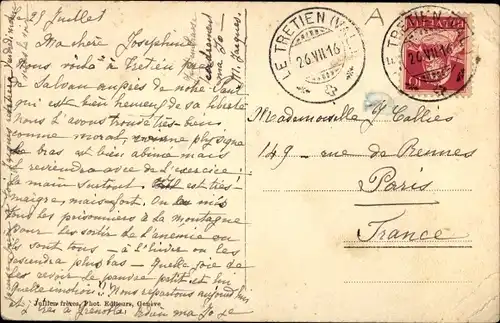 25 Juillet
Ma chère Josephine
Nous voilà à Trétien près
de Salvan auprès de notre
qui est bien heureux de sa liberté
Nous l'avons trouvé très bien
comme moral, comme physique
le bras est bien abîmé mais
il reviendra avec de l'exercice!
la main surtout. Il est très
maigre, mais fort. On a mis
tous les prisonniers à la montagne
pour les sortir de l'anémie où
ils sont tous - à l'hiver on les
descendra plus bas - Quelle joie de
les revoir le pauvre petit et
Quelle émotion!! Nous repartons aujourd'hui
à Grenoble. ma Jo
tendrement
ma Jo -
M. Jacques.
LE TRETIEN (VAL
26.VII.16
LE TRETIEN (VAL
26.VII.16
A
Mademoiselle J Calliès
149 - rue de Rennes
Paris
France
Jullien frères, Phot. Editeurs, Genève